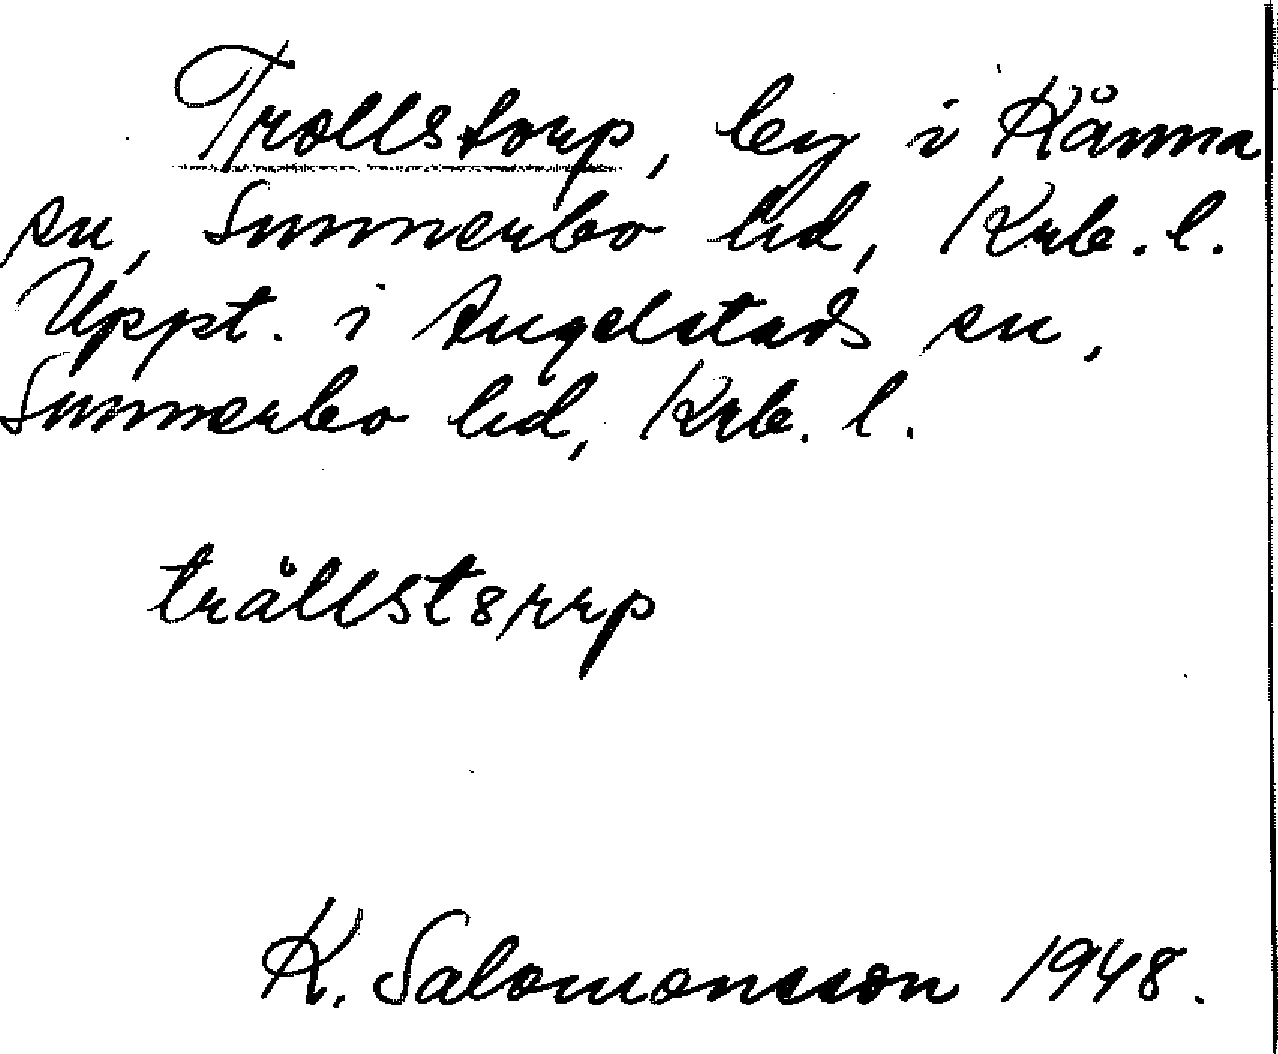 Trollstorp, by i Kånna
sn, Sunnerbo hd, Krb. l.
Uppt. i Angelstads sn,
Sunnerbo hd, Krb. l.
trållst8rrp
K. Salomonsson 1948.